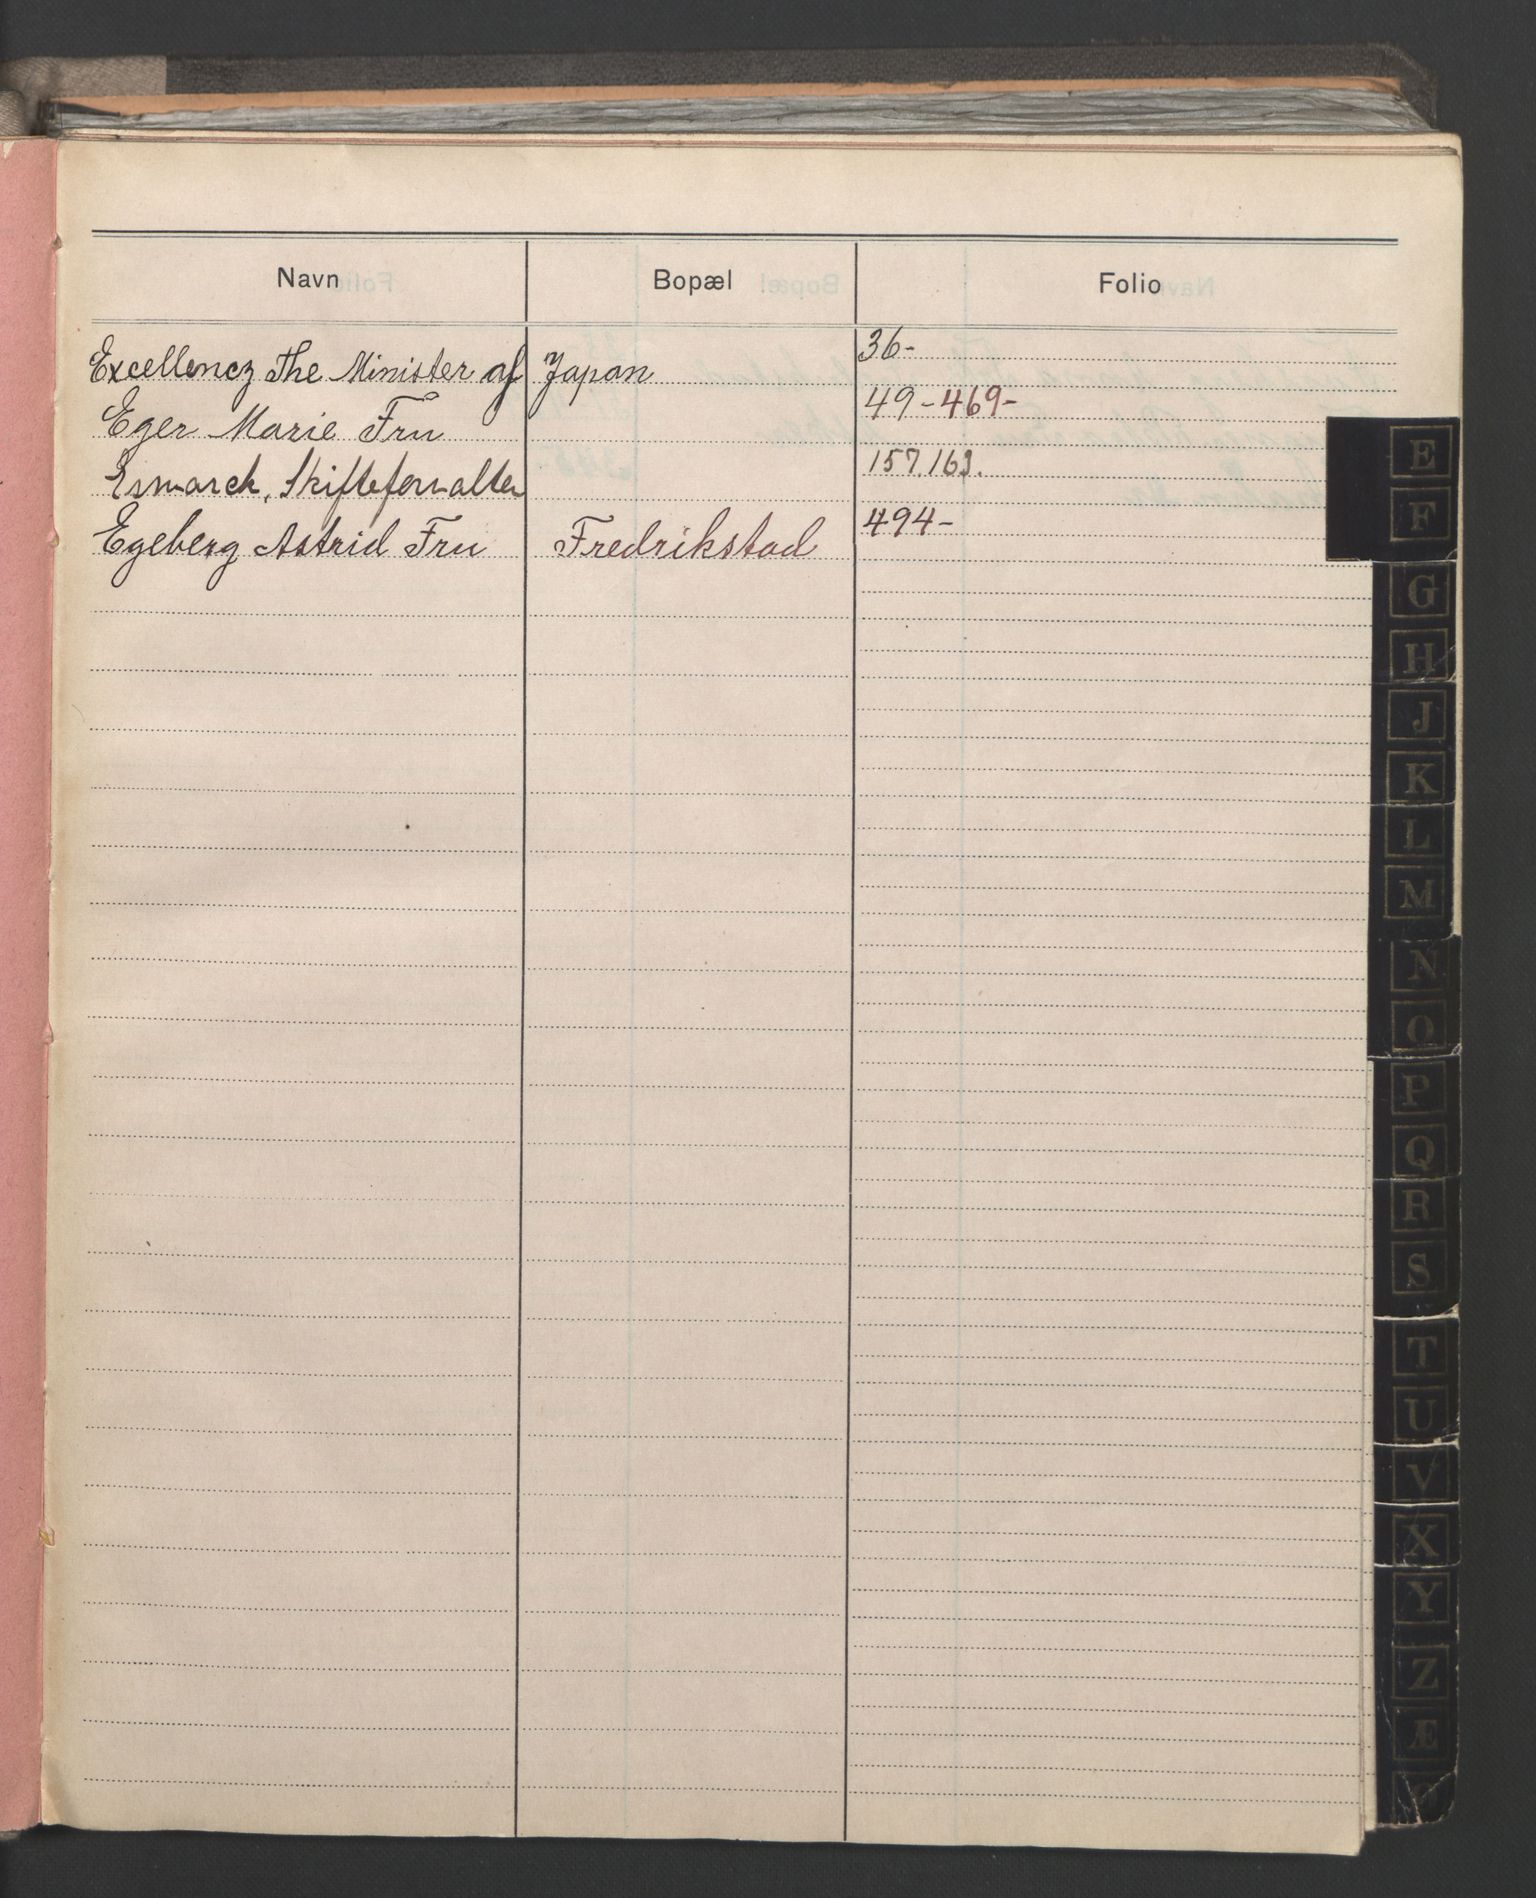 Navn Bopæl Folio
Excellencz The Minister af Japan 36-
Eger Marie Fru 49-469-
Esmarch, Skifteforvalter 157.163.
Egeberg Astrid Fru Fredrikstad 494-
E
F
G
H
J
K
L
M
N
O
P
Q
R
S
T
U
V
X
Y
Z
Æ